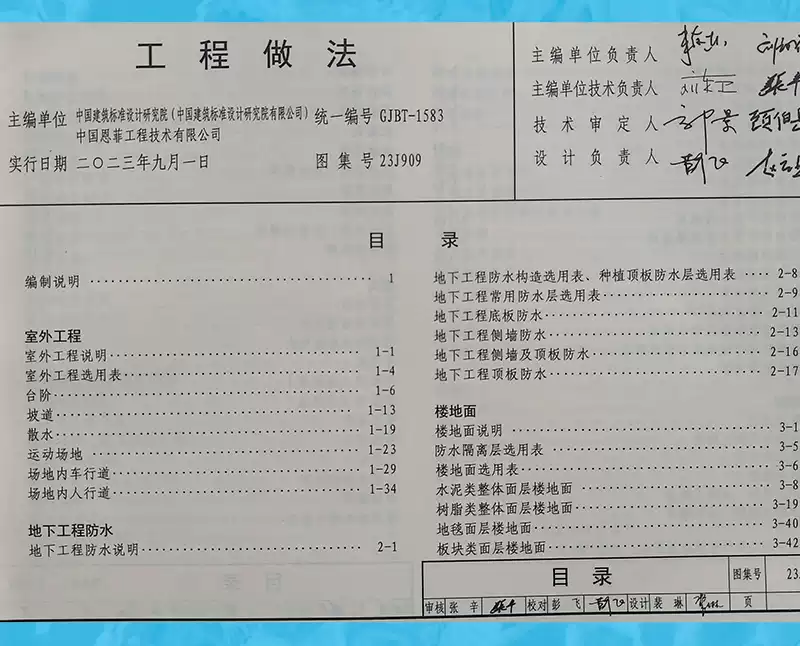 工程做法
主编单位 中国建筑标准设计研究院(中国建筑标准设计研究院有限公司) 统一编号 GJBT-1583
中国恩菲工程技术有限公司
实行日期 二〇二三年九月一日 图集号 23J909
主编单位负责人
主编单位技术负责人
技术审定人
设计负责人
目录
编制说明 1
室外工程
室外工程说明 1-1
室外工程选用表 1-4
台阶 1-6
坡道 1-13
散水 1-19
运动场地 1-23
场地内车行道 1-29
场地内人行道 1-34
地下工程防水
地下工程防水说明 2-1
地下工程防水构造选用表、种植顶板防水层选用表 2-8
地下工程常用防水层选用表 2-9
地下工程底板防水 2-11
地下工程侧墙防水 2-13
地下工程侧墙及顶板防水 2-16
地下工程顶板防水 2-17
楼地面
楼地面说明 3-1
防水隔离层选用表 3-5
楼地面选用表 3-6
水泥类整体面层楼地面 3-8
树脂类整体面层楼地面 3-19
地毯面层楼地面 3-40
板块类面层楼地面 3-42
目录 图集号 23
审核 张辛 校对 彭飞 设计 裴琳 页